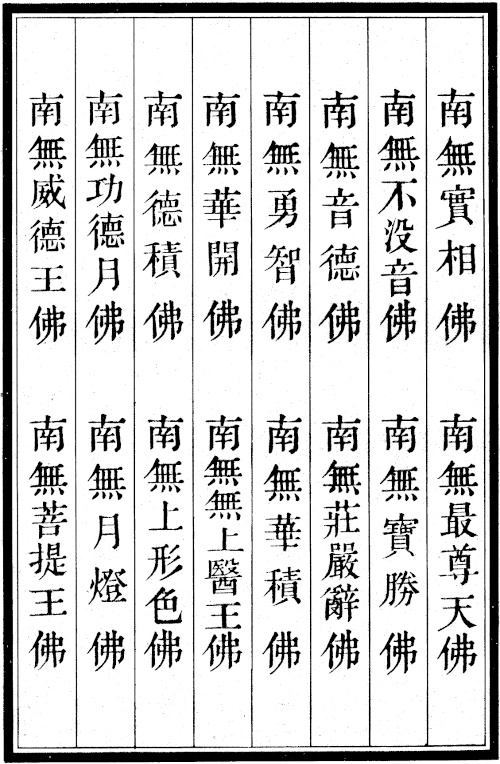 南無實相佛　南無最尊天佛
南無不没音佛　南無寶勝佛
南無音德佛　南無莊嚴辭佛
南無勇智佛　南無華積佛
南無華開佛　南無無上醫王佛
南無德積佛　南無上形色佛
南無功德月佛　南無月燈佛
南無威德王佛　南無菩提王佛